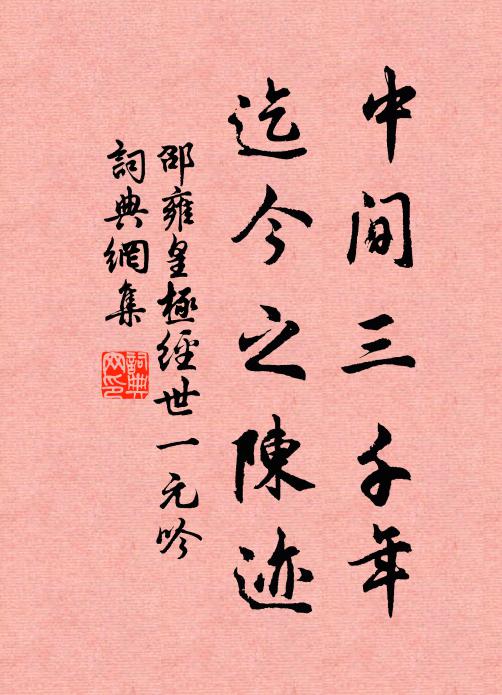 中間三千年
迄今之陳迹
邵雍皇極經世一元吟
詞典網集
詞典
网印